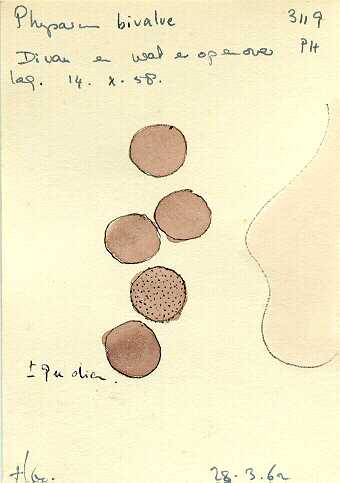 Physarum bivalve 3119
Divan en wat er op en over PH
lag. 14. x. 58.
± 9μ diam.
28.3.62